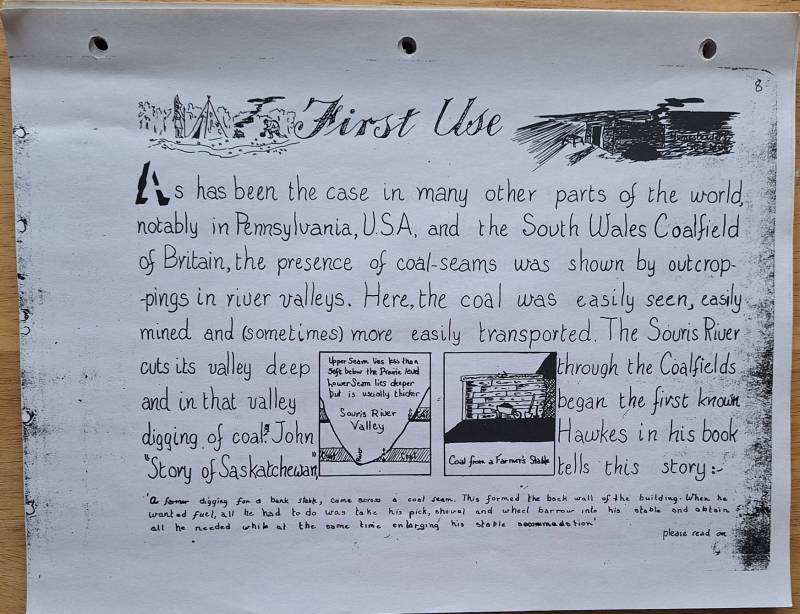 8
First Use
As has been the case in many other parts of the world,
notably in Pennsylvania, U.S.A, and the South Wales Coalfield
of Britain, the presence of coal-seams was shown by outcrop-
-pings in river valleys. Here, the coal was easily seen, easily
mined and (sometimes) more easily transported. The Souris River
cuts its valley deep through the Coalfields
and in that valley began the first known
digging of coal. John Hawkes in his book
"Story of Saskatchewan," tells this story:-
Upper Seam lies less than
50ft below the Prairie level
Lower Seam lies deeper
but is usually thicker
Souris River
Valley
Coal from a Farmer's Stable
'A farmer digging for a bank stable, came across a coal seam. This formed the back wall of the building. When he
wanted fuel, all he had to do was take his pick, shovel and wheel barrow into his stable and obtain
all he needed while at the same time enlarging his stable accommodation'
please read on